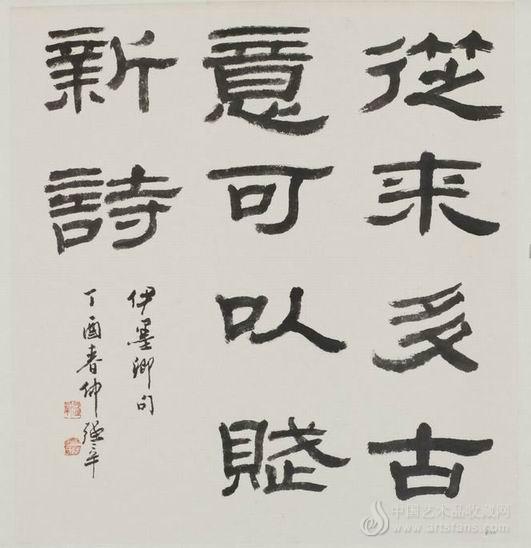 從来多古
意可以賦
新詩
伊墨卿句
丁酉春仲強辛
中国艺术品收藏网
www.artsfans.com